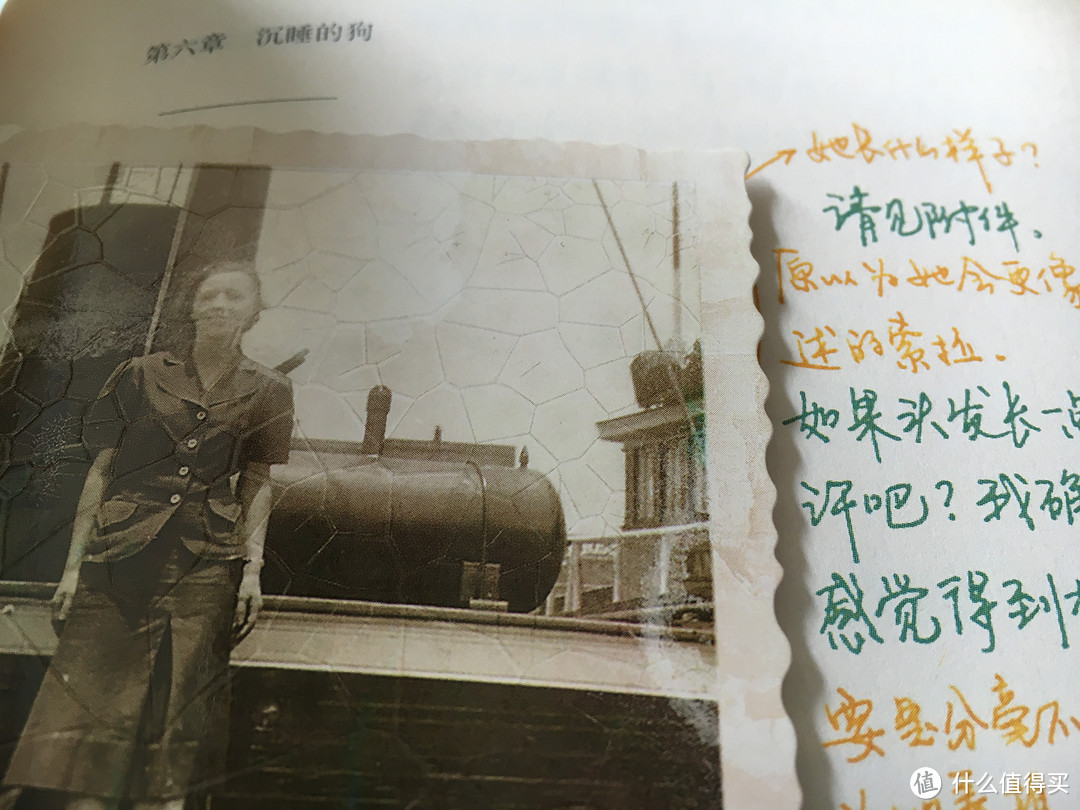 第六章 沉睡的狗
她长什么样子？
请见附件。
原以为她会更像
述的索拉。
如果头发长一点
许吧？我确
感觉得到
要是分毫不
值 什么值得买